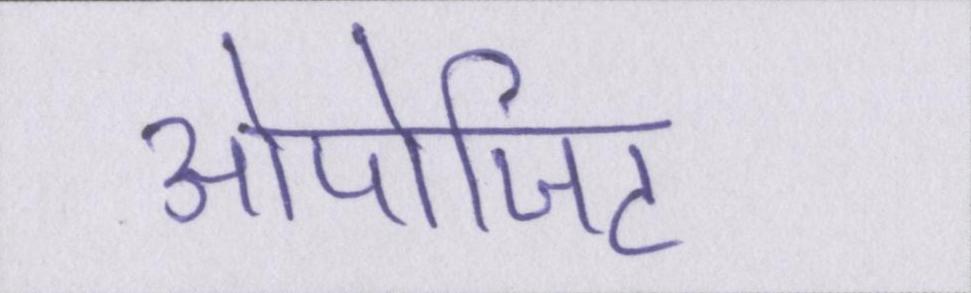 ओपोजिंट